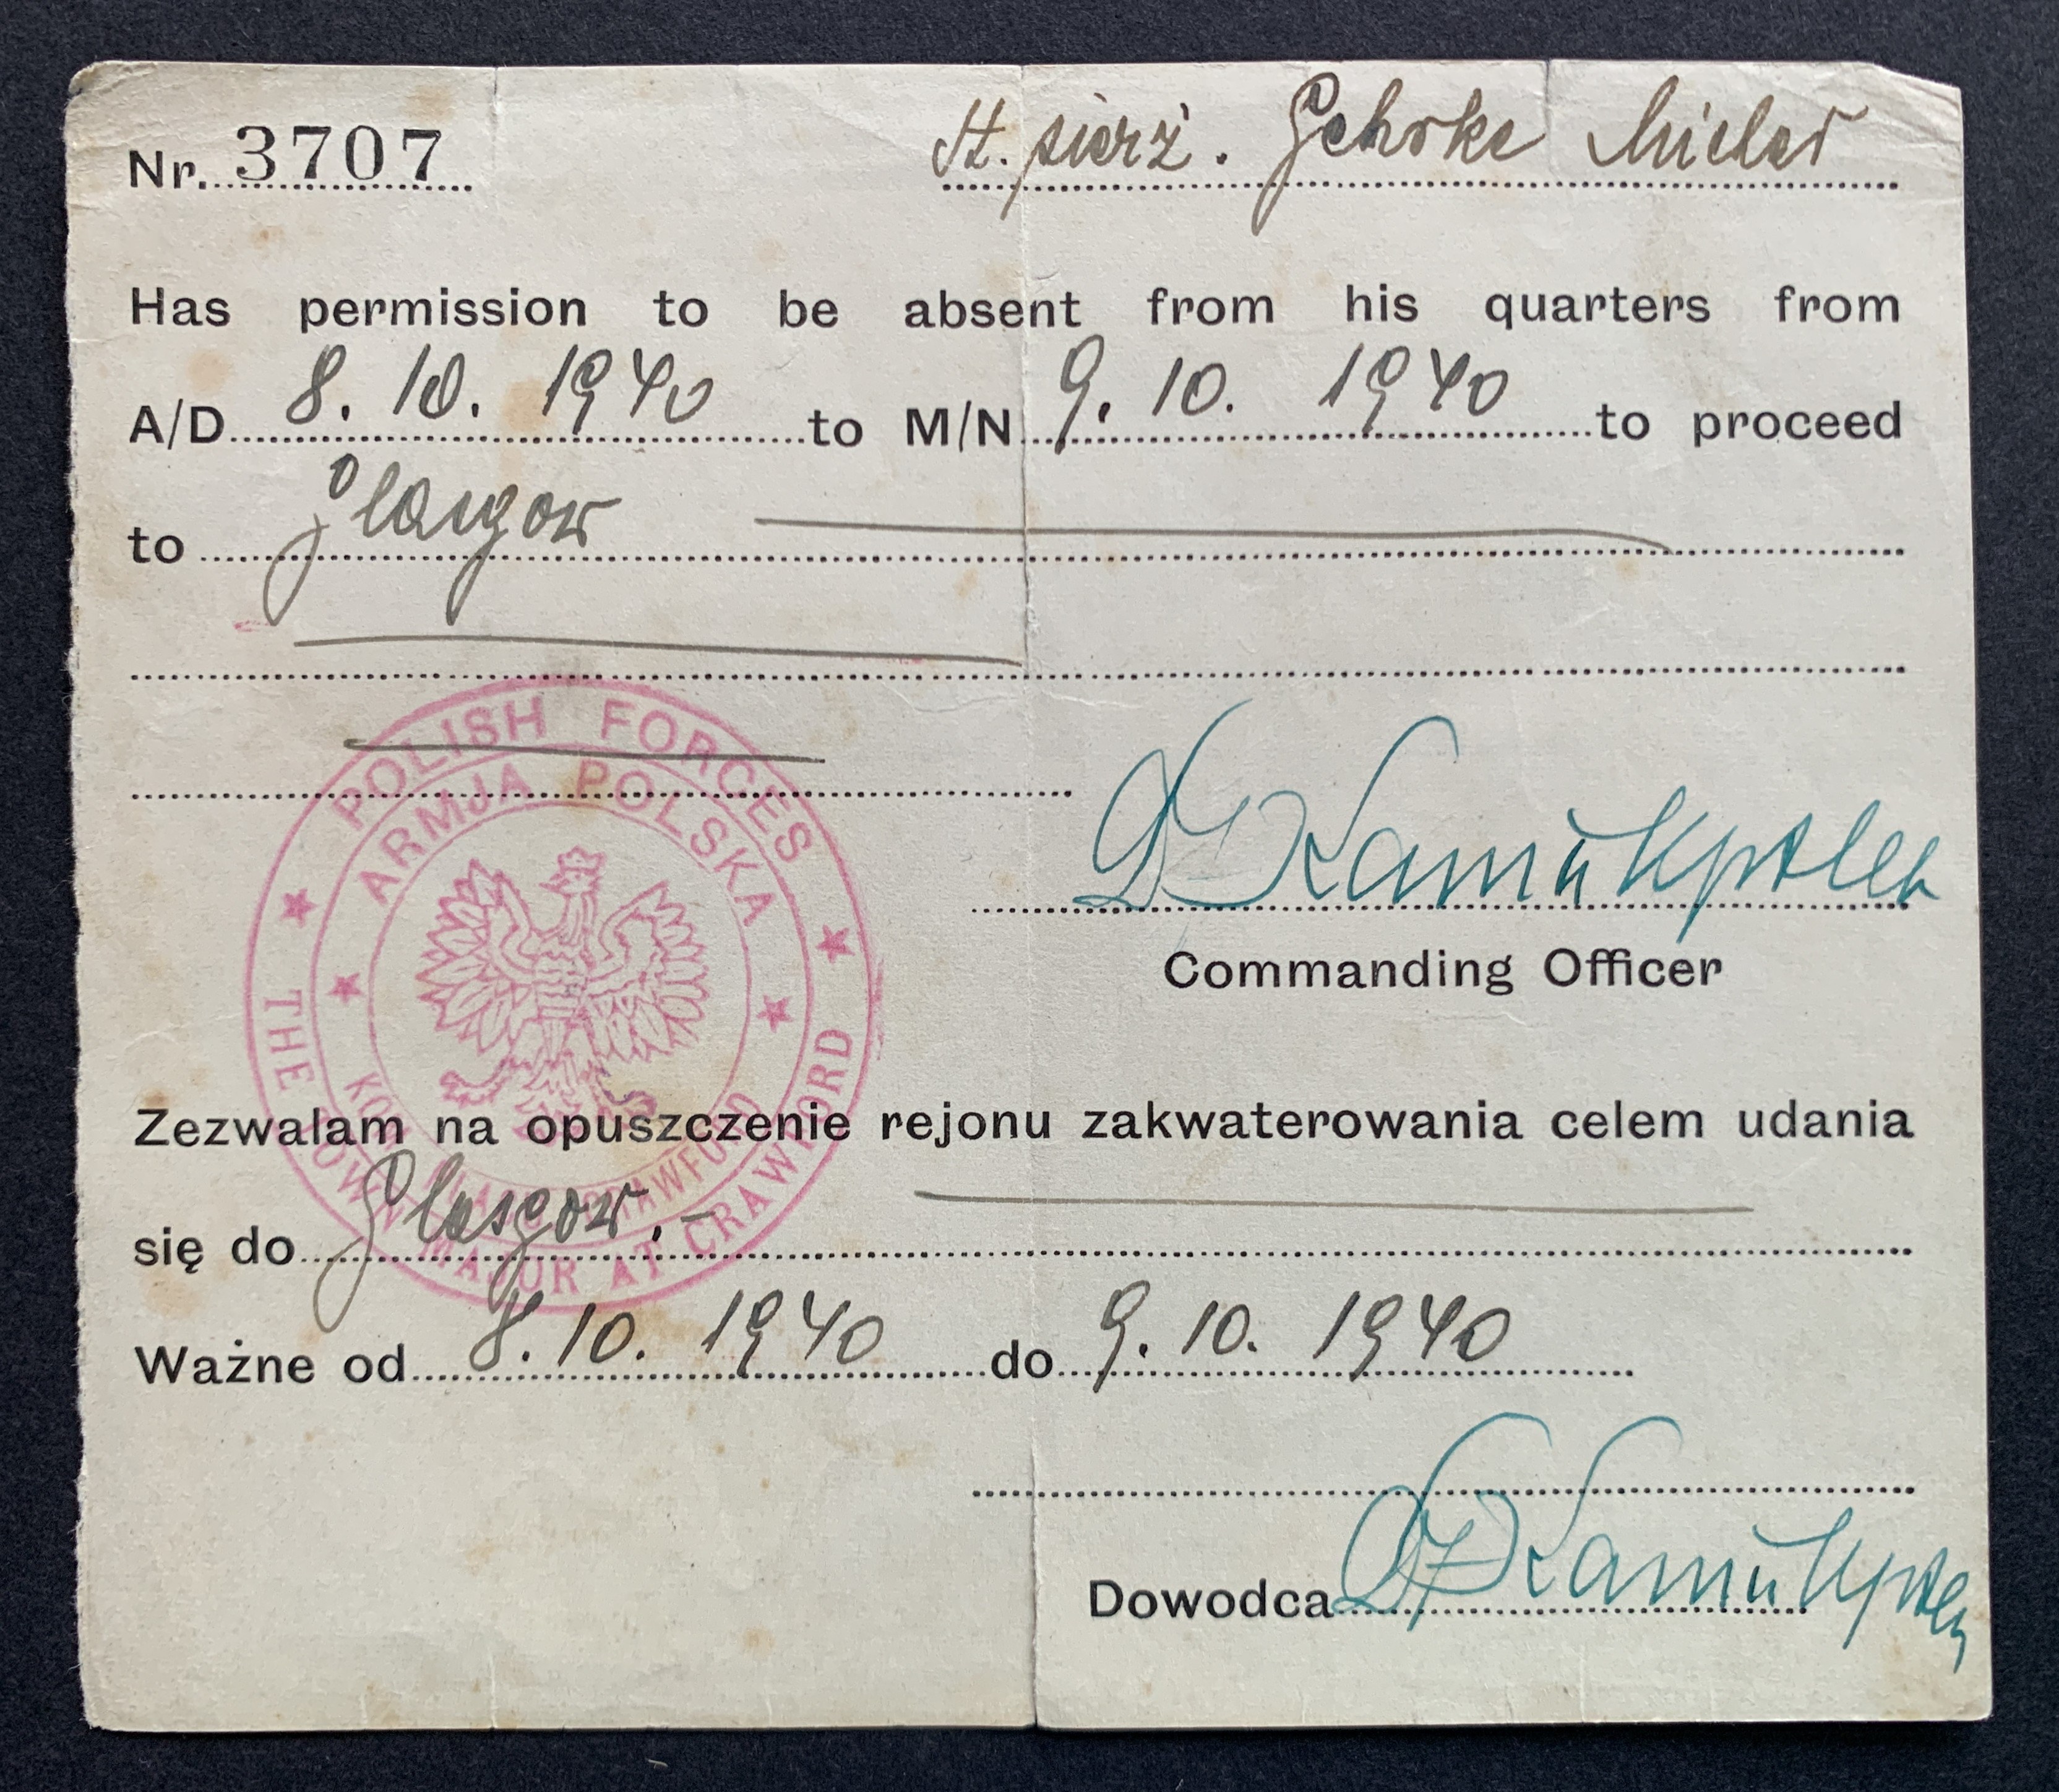 Nr. 3707
st. sierż. Gehrke Michał
Has permission to be absent from his quarters from
A/D 8. 10. 1940 to M/N 9. 10. 1940 to proceed
to Glasgow
POLISH FORCES
ARMJA POLSKA
THE TOWN MAJOR AT CRAWFORD
CRAWFORD
Commanding Officer
Zezwalam na opuszczenie rejonu zakwaterowania celem udania
się do Glasgow.-
Ważne od 8. 10. 1940 do 9. 10. 1940
Dowodca